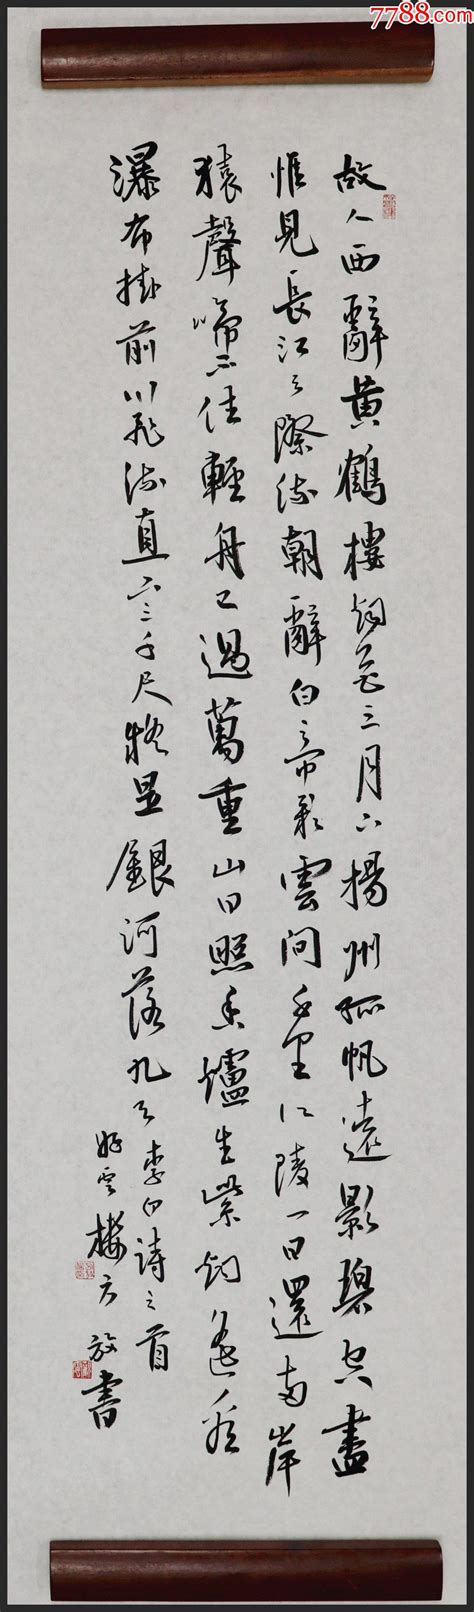 7788.com
故人西辭黄鶴樓烟花三月下揚州孤帆遠影碧空盡
惟見長江天際流朝辭白帝彩雲間千里江陵一日還兩岸
猿聲啼不住輕舟已過萬重山日照香爐生紫烟遙看
瀑布掛前川飛流直下三千尺疑是銀河落九天李白詩三首
雲樓方放書